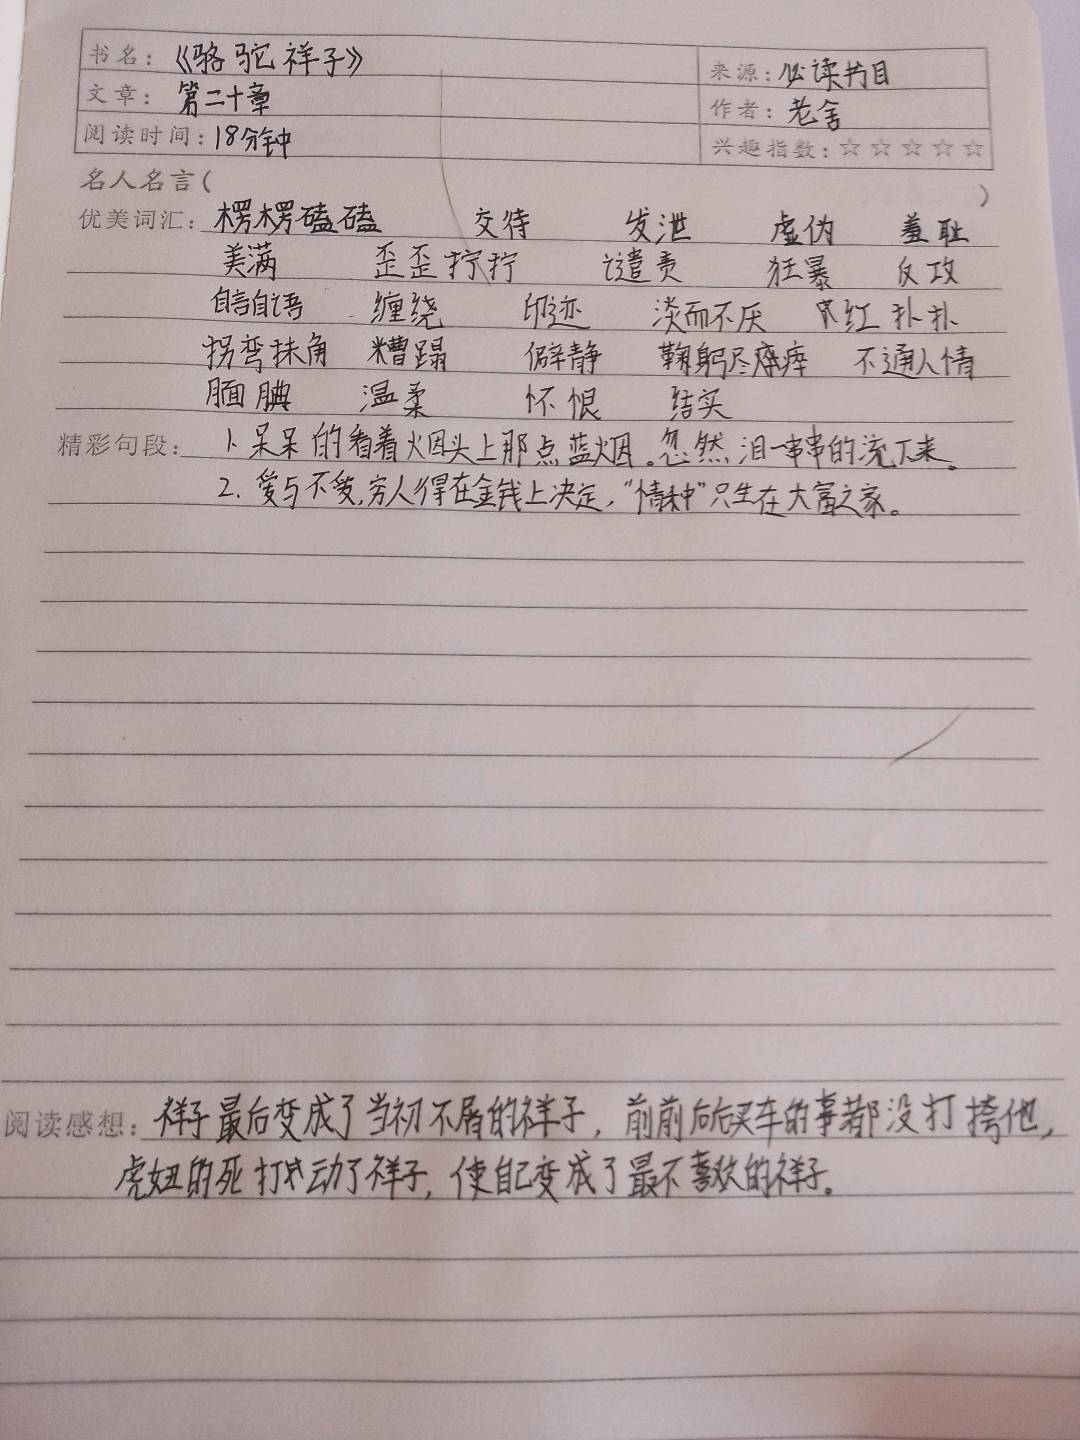 书名：《骆驼祥子》 来源：必读书目
文章：第二十章 作者：老舍
阅读时间：18分钟 兴趣指数：☆☆☆☆☆
名人名言（ ）
优美词汇：楞楞磕磕 交待 发泄 虚伪 羞耻
美满 歪歪拧拧 谴责 狂暴 反攻
自言自语 缠绕 印迹 淡而不厌 红扑扑
拐弯抹角 糟蹋 僻静 鞠躬尽瘁 不通人情
腼腆 温柔 怀恨 结实
精彩句段：1、呆呆的看着火烟头上那点蓝烟。忽然泪一串串的流下来。
2. 爱与不爱,穷人得在金钱上决定,“情种”只生在大富之家。
阅读感想：祥子最后变成了当初不屑的祥子，前前后后买车的事都没打挎他，
虎妞的死打动了祥子，使自己变成了最不喜欢的祥子。